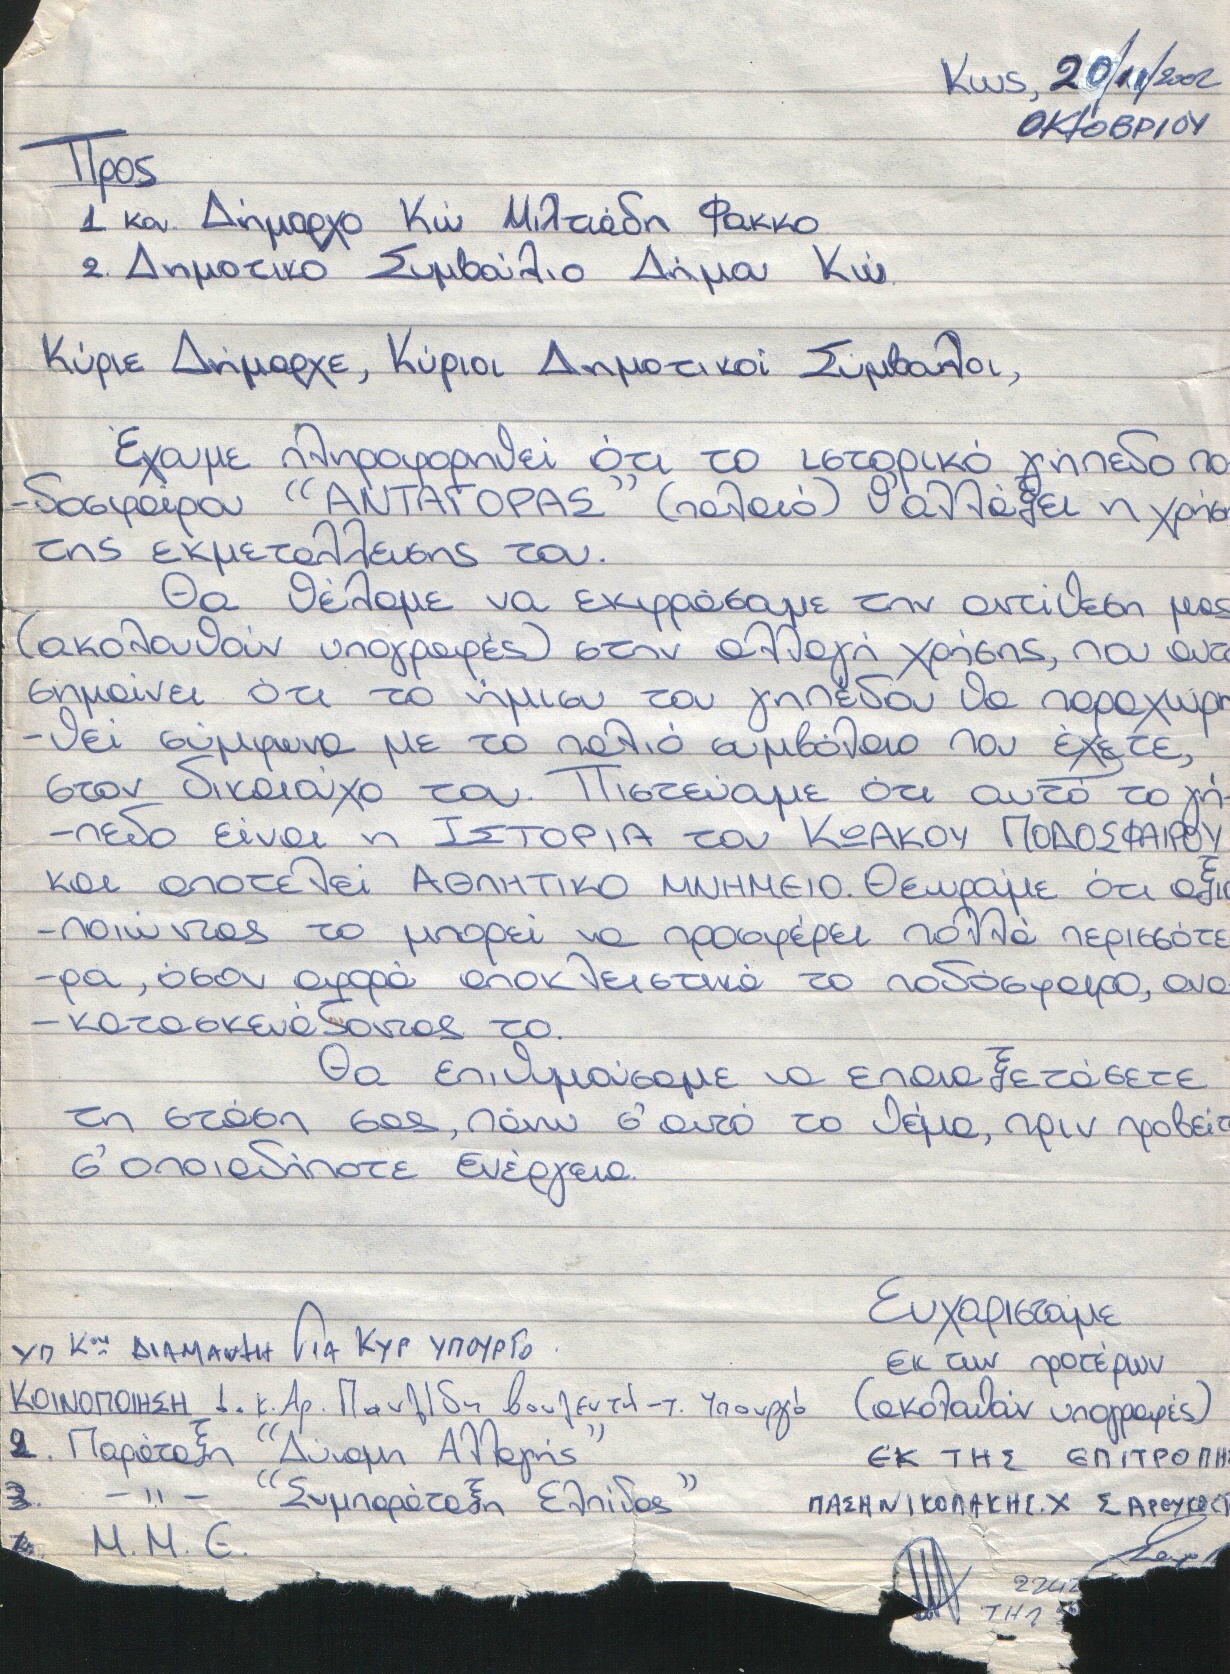 Κως, 20/11/2002
ΟΚΤΩΒΡΙΟΥ
Προς
1 κον Δήμαρχο Κώ Μιλτιάδη Φακκο
2. Δημοτικο Συμβούλιο Δήμου Κώ.
Κύριε Δήμαρχε, Κύριοι Δημοτικοί Σύμβουλοι,
Έχουμε πληροφορηθεί ότι το ιστορικό γήπεδο πο-
-δοσφαίρου "ΑΝΤΑΓΟΡΑΣ" (παλαιό) θ'αλλάξει η χρήση
της εκμετάλλευσης του.
Θα θέλαμε να εκφράσουμε την αντίθεση μας
(ακολουθούν υπογραφές) στην αλλαγή χρήσης, που αυτό
σημαίνει ότι το ήμισυ του γηπέδου θα παραχωρη-
-θεί σύμφωνα με το παλιό συμβόλαιο που έχετε,
στον δικαιούχο του. Πιστεύουμε ότι αυτό το γή-
-πεδο είναι η ΙΣΤΟΡΙΑ του ΚΩΑΚΟΥ ΠΟΔΟΣΦΑΙΡΟΥ
και αποτελεί ΑΘΛΗΤΙΚΟ ΜΝΗΜΕΙΟ. Θεωρούμε ότι αξιο-
-ποιώντας το μπορεί να προσφέρει πολλά περισσότε-
-ρα, όσον αφορά αποκλειστικά το ποδόσφαιρο, ανα-
-κατασκευάζοντας το.
Θα επιθυμούσαμε να επαναξετάσετε
τη στάση σας, πάνω σ'αυτό το θέμα, πριν προβείτε
σ'οποιαδήποτε ενέργεια.
Ευχαριστούμε
εκ των προτέρων
(ακολουθούν υπογραφές)
ΕΚ ΤΗΣ ΕΠΙΤΡΟΠΗΣ
ΠΑΣΗΝΙΚΟΛΑΚΗΣ.Χ
ΥΠ Κον ΔΙΑΜΑΝΤΗ ΓΙΑ ΚΥΡ ΥΠΟΥΡΓΟ
ΚΟΙΝΟΠΟΙΗΣΗ 1. κ. Αρ. Παυλίδη βουλευτή - τ. Υπουργό
2. Παράταξη "Δύναμη Αλλαγής"
3. -〃- "Συμπαράταξη Ελπίδας"
Μ.Μ.Ε.
ΤΗΛ